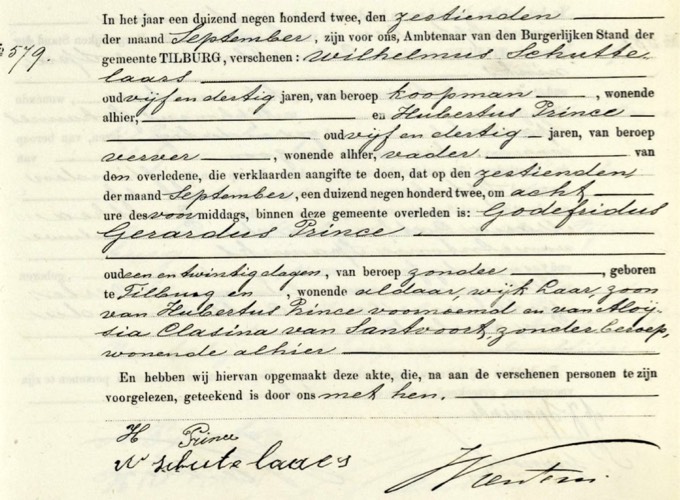 In het jaar een duizend negen honderd twee, den zestienden
der maand September, zijn voor ons, Ambtenaar van den Burgerlijken Stand der
579. gemeente TILBURG, verschenen: Wilhelmus Schutte-
laars
oud vijf en dertig jaren, van beroep koopman, wonende
alhier, en Hubertus Prince
oud vijf en dertig jaren, van beroep
verver, wonende alhier, vader van
den overledene, die verklaarden aangifte te doen, dat op den zestienden
der maand September, een duizend negen honderd twee, om acht
ure des voormiddags, binnen deze gemeente overleden is: Godefridus
Gerardus Prince
oud een en twintig dagen, van beroep zonder, geboren
te Tilburg en, wonende aldaar, wijk Laar, zoon
van Hubertus Prince voornoemd en van Aloÿ-
sia Clasina van Santvoort, zonder beroep,
wonende alhier
En hebben wij hiervan opgemaakt deze akte, die, na aan de verschenen personen te zijn
voorgelezen, geteekend is door ons met hen.
H Prince
W schutelaars